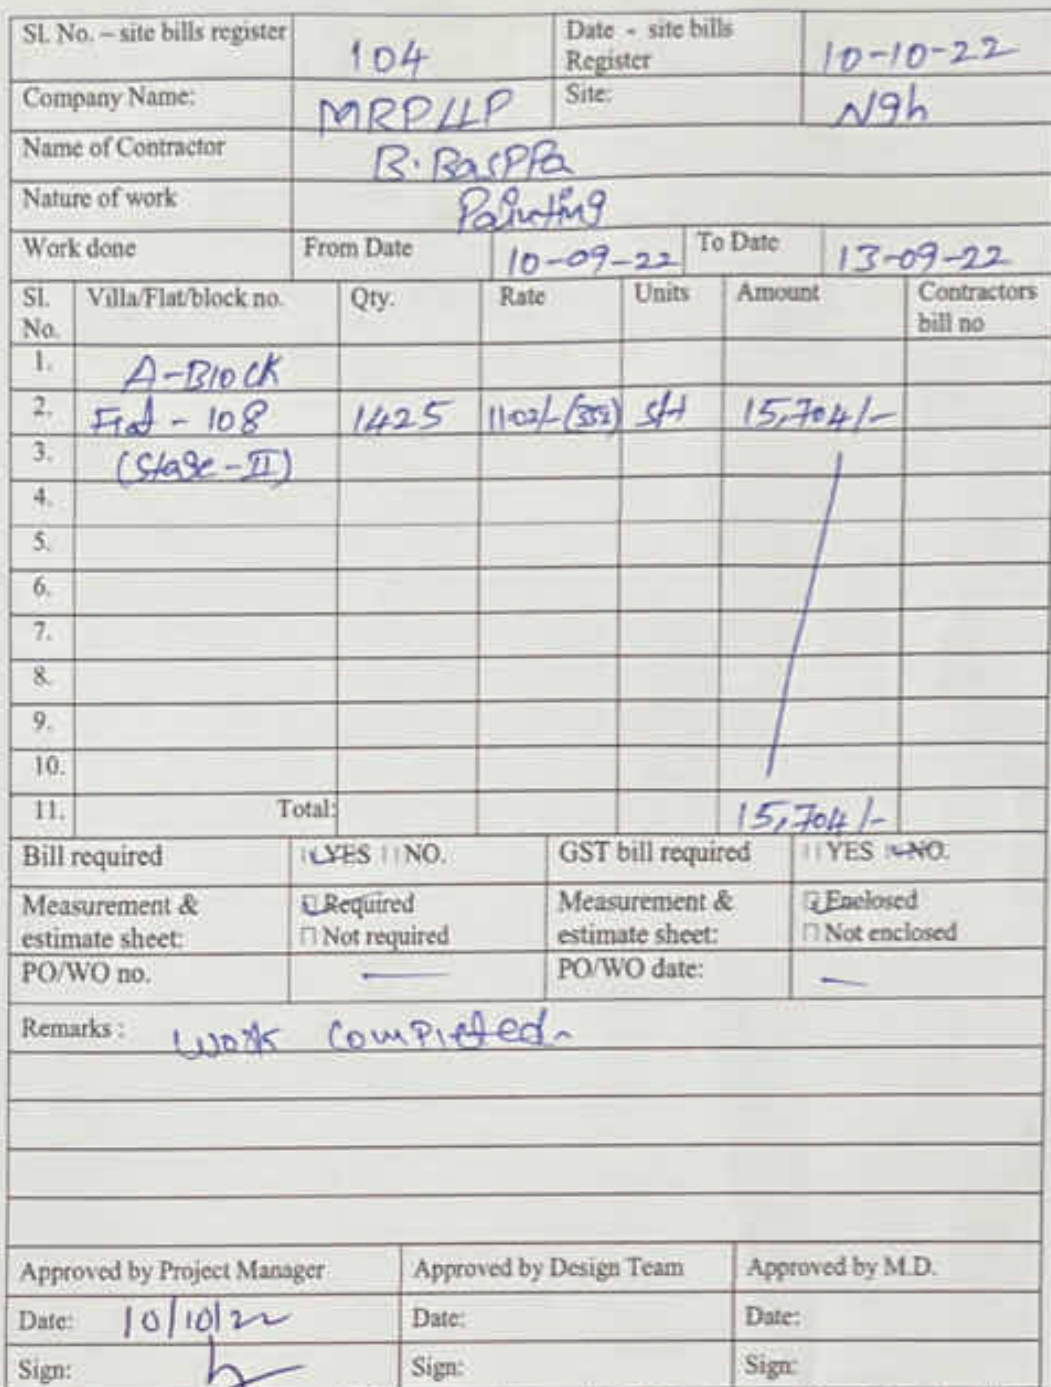 Sl. No. – site bills register 104 Date - site bills Register 10-10-22
Company Name: MRPLLP Site: N9h
Name of Contractor B. BasPPa
Nature of work Painting
Work done From Date 10-09-22 To Date 13-09-22
Sl. No. Villa/Flat/block no. Qty. Rate Units Amount Contractors bill no
1. A-Block
2. Flat - 108 1425 11-02/- sft 15,704/-
3. (Stage-II)
4.
5.
6.
7.
8.
9.
10.
11. Total: 15,704/-
Bill required YES NO. GST bill required YES NO.
Measurement & estimate sheet: Required Not required Measurement & estimate sheet: Enclosed Not enclosed
PO/WO no. — PO/WO date: —
Remarks : Work Completed
Approved by Project Manager Approved by Design Team Approved by M.D.
Date: 10/10/22 Date: Date:
Sign: Sign: Sign: